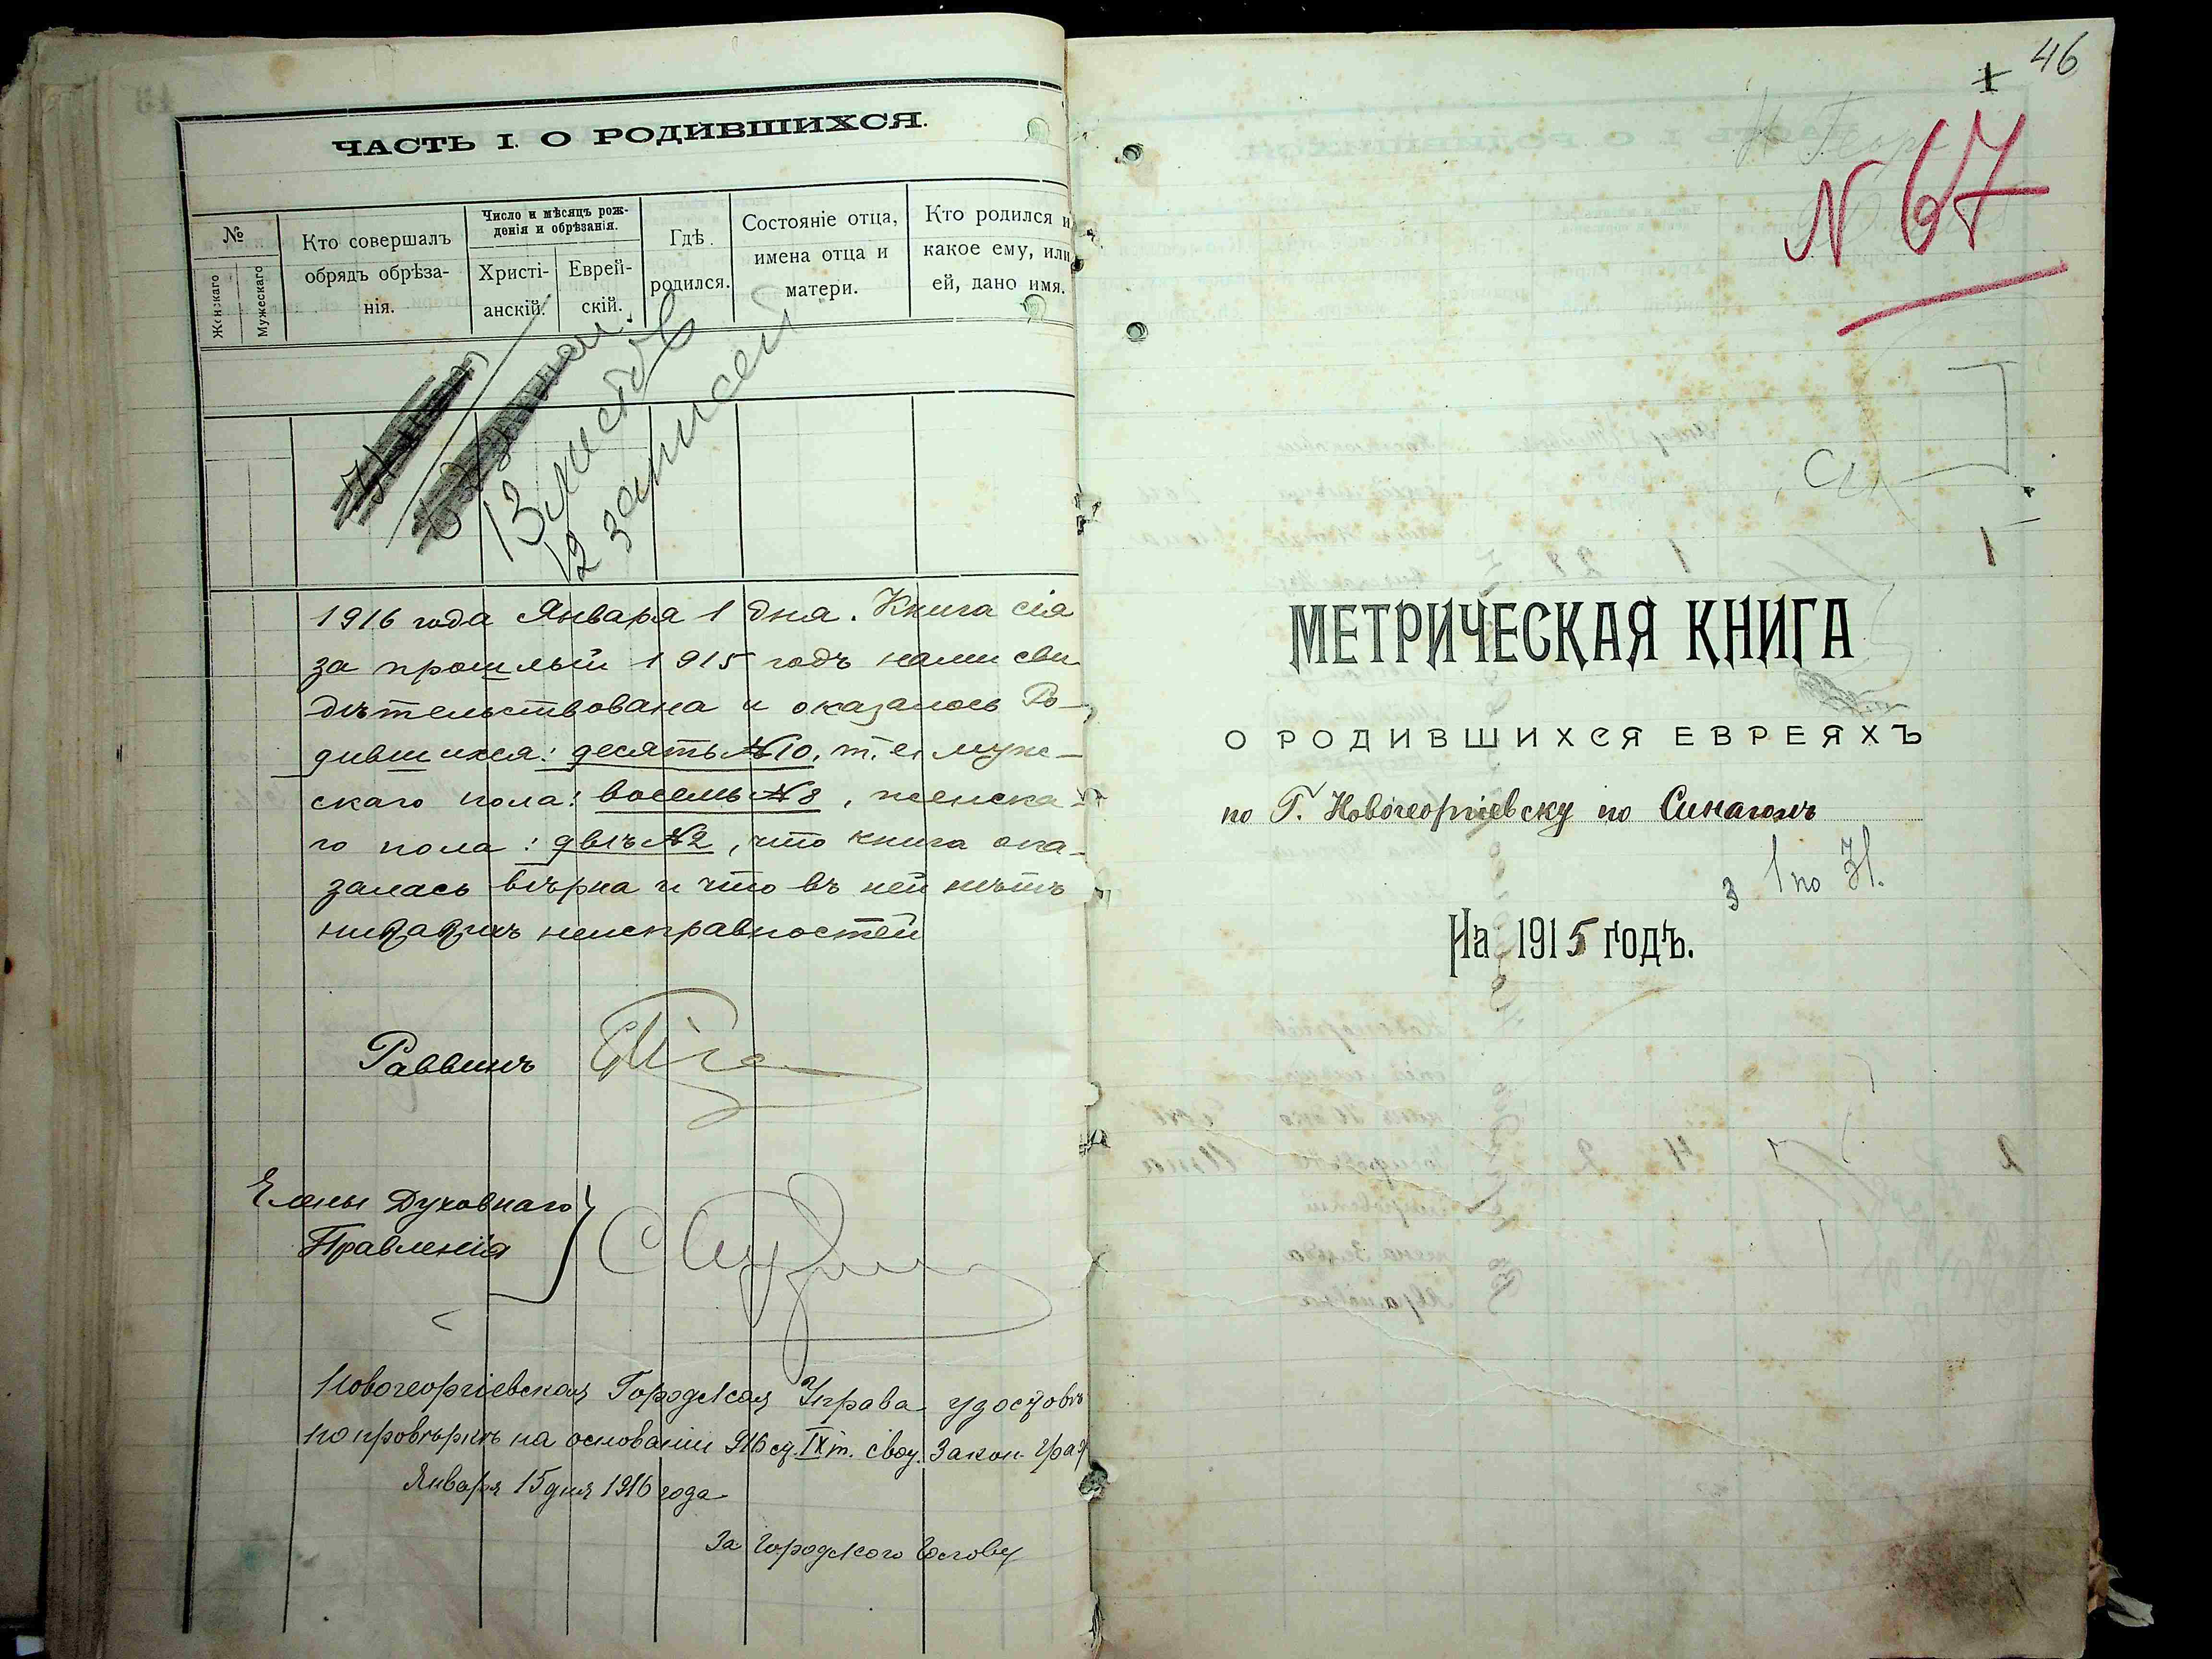 ЧАСТЬ I. О РОДИВШИХСЯ.
№
Женскаго
Мужескаго
Кто совершалъ
обрядъ обрѣза-
нія.
Число и мѣсяцъ рож-
денія и обрѣзанія.
Христі-
анскій.
Еврей-
скій.
Гдѣ
родился.
Состояніе отца,
имена отца и
матери.
Кто родился и
какое ему, или
ей, дано имя.
13 листов
12 записей
1916 года Января 1 дня. Книга сія
за прошлый 1915 годъ нами сви
дѣтельствована и оказалось Ро-
дившихся: десять №10, т.е. муж-
скаго пола: восемь №8, женска-
го пола: двѣ №2, что книга ока-
залась вѣрна и что въ ней нѣтъ
никакихъ неисправностей
Раввинъ
Члены Духовнаго
Правленія
Новогеоргіевская Городская Управа удостовѣ
по провѣркѣ на основаніи 916 ст. IX т. свод. Закон. Град
Января 15 дня 1916 года
За Городского Голову
46
1
Н Геор
N 67
МЕТРИЧЕСКАЯ КНИГА
О РОДИВШИХСЯ ЕВРЕЯХЪ
по Г. Новогеоргіевску по Синагогѣ
На 1915 годъ.